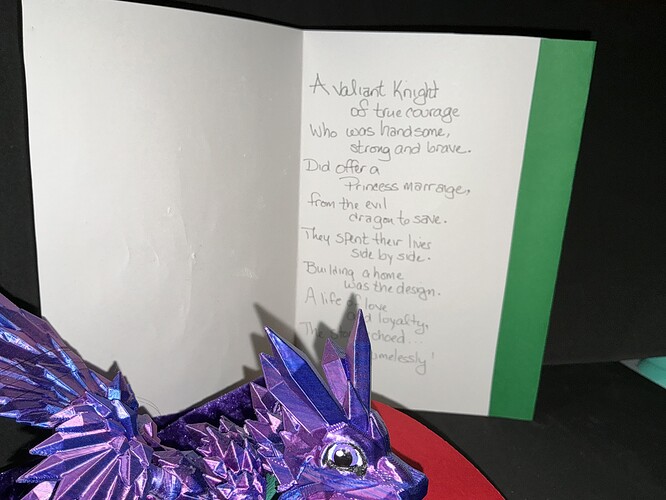 A valiant Knight
of true courage
Who was handsome,
strong and brave.
Did offer a
Princess marraige,
from the evil
dragon to save.
They spent their lives
side by side.
Building a home
was the design.
A life of love
and loyalty,